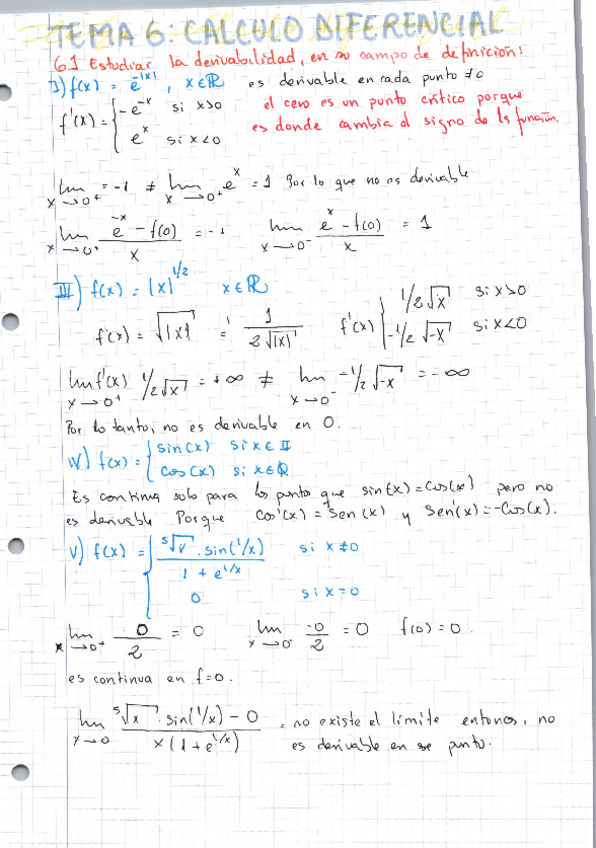 TEMA 6: CALCULO DIFERENCIAL
6.1 Estudiar la derivabilidad, en su campo de definición:
I) f(x) = e^{-|x|}, x∈ℝ es derivable en cada punto ≠0
f'(x) = { -e^{-x} si x>0 el cero es un punto crítico porque
e^x si x<0 es donde cambia el signo de la función.
lim x→0⁺ = -1 ≠ lim x→0⁺ e^x = 1 Por lo que no es derivable
lim x→0⁺ (e^{-x} - f(0))/x = -1 lim x→0⁻ (e^x - f(0))/x = 1
III) f(x) = |x|^{1/2} x∈ℝ
f(x) = √|x| = 1/(2√|x|) f'(x) { 1/2√x si x>0
-1/2√-x si x<0
lim f'(x) x→0⁺ 1/2√x = +∞ ≠ lim x→0⁻ -1/2√-x = -∞
Por lo tanto, no es derivable en 0.
IV) f(x) = { sin(x) si x∈ II
cos(x) si x∈ℚ
Es continua solo para los puntos que sin(x) = cos(x) pero no
es derivable Porque cos'(x) = sen(x) y sen(x) = -cos(x).
V) f(x) = { (⁵√x · sin(1/x))/(1 + e^{1/x}) si x≠0
0 si x=0
lim x→0⁺ 0/2 = 0 lim x→0⁻ -0/2 = 0 f(0) = 0.
es continua en f=0.
lim x→0 (⁵√x · sin(1/x) - 0)/(x(1+e^{1/x})) = no existe el límite entonces, no
es derivable en se punto.